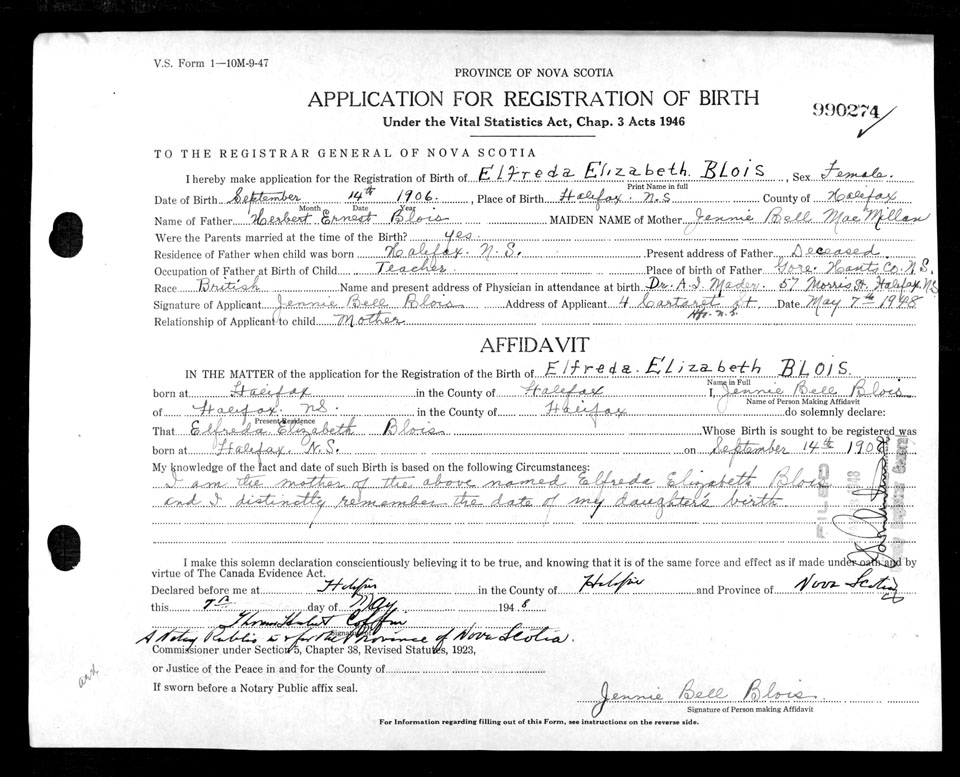 V.S. Form 1—10M-9-47
PROVINCE OF NOVA SCOTIA
APPLICATION FOR REGISTRATION OF BIRTH
990274
Under the Vital Statistics Act, Chap. 3 Acts 1946
TO THE REGISTRAR GENERAL OF NOVA SCOTIA
I hereby make application for the Registration of Birth of Elfreda Elizabeth. BLOIS, Sex Female.
Print Name in full
Date of Birth September 14th 1906., Place of Birth Halifax. N.S County of Halifax
Month Date Year
Name of Father Herbert Ernest Blois MAIDEN NAME of Mother Jennie Bell MacMillan
Were the Parents married at the time of the Birth? yes.
Residence of Father when child was born Halifax. N.S. Present address of Father Deceased.
Occupation of Father at Birth of Child Teacher. Place of birth of Father Gore. Hants Co. N.S.
Race British Name and present address of Physician in attendance at birth Dr. A.I. Mader. 57 Morris St. Halifax, N.S
Signature of Applicant Jennie Bell Blois Address of Applicant 4 Cartaret St Date May 7th 1948
Hfx. N.S.
Relationship of Applicant to child Mother
AFFIDAVIT
IN THE MATTER of the application for the Registration of the Birth of Elfreda. Elizabeth BLOIS.
Name in Full
born at Halifax in the County of Halifax I, Jennie Bell Blois
Name of Person Making Affidavit
of Halifax. NS. in the County of Halifax do solemnly declare:
Present Residence
That Elfreda Elizabeth Blois Whose Birth is sought to be registered was
born at Halifax. N.S. on September 14th 1906
My knowledge of the fact and date of such Birth is based on the following Circumstances:
I am the mother of the above named Elfreda Elizabeth Blois
and I distinctly remember the date of my daughter's birth.
FILED
I make this solemn declaration conscientiously believing it to be true, and knowing that is of the same force and effect as if made under oath and by
virtue of The Canada Evidence Act.
Declared before me at Halifax in the County of Halifax and Province of Nova Scotia
this 7th day of May 1948
Signature
A Notary Public in & for the Province of Nova Scotia.
Commissioner under Section 5, Chapter 38, Revised Statutes, 1923,
or Justice of the Peace in and for the County of
If sworn before a Notary Public affix seal.
Jennie Bell Blois.
Signature of Person making Affidavit
For Information regarding filling out of this Form, see instructions on the reverse side.